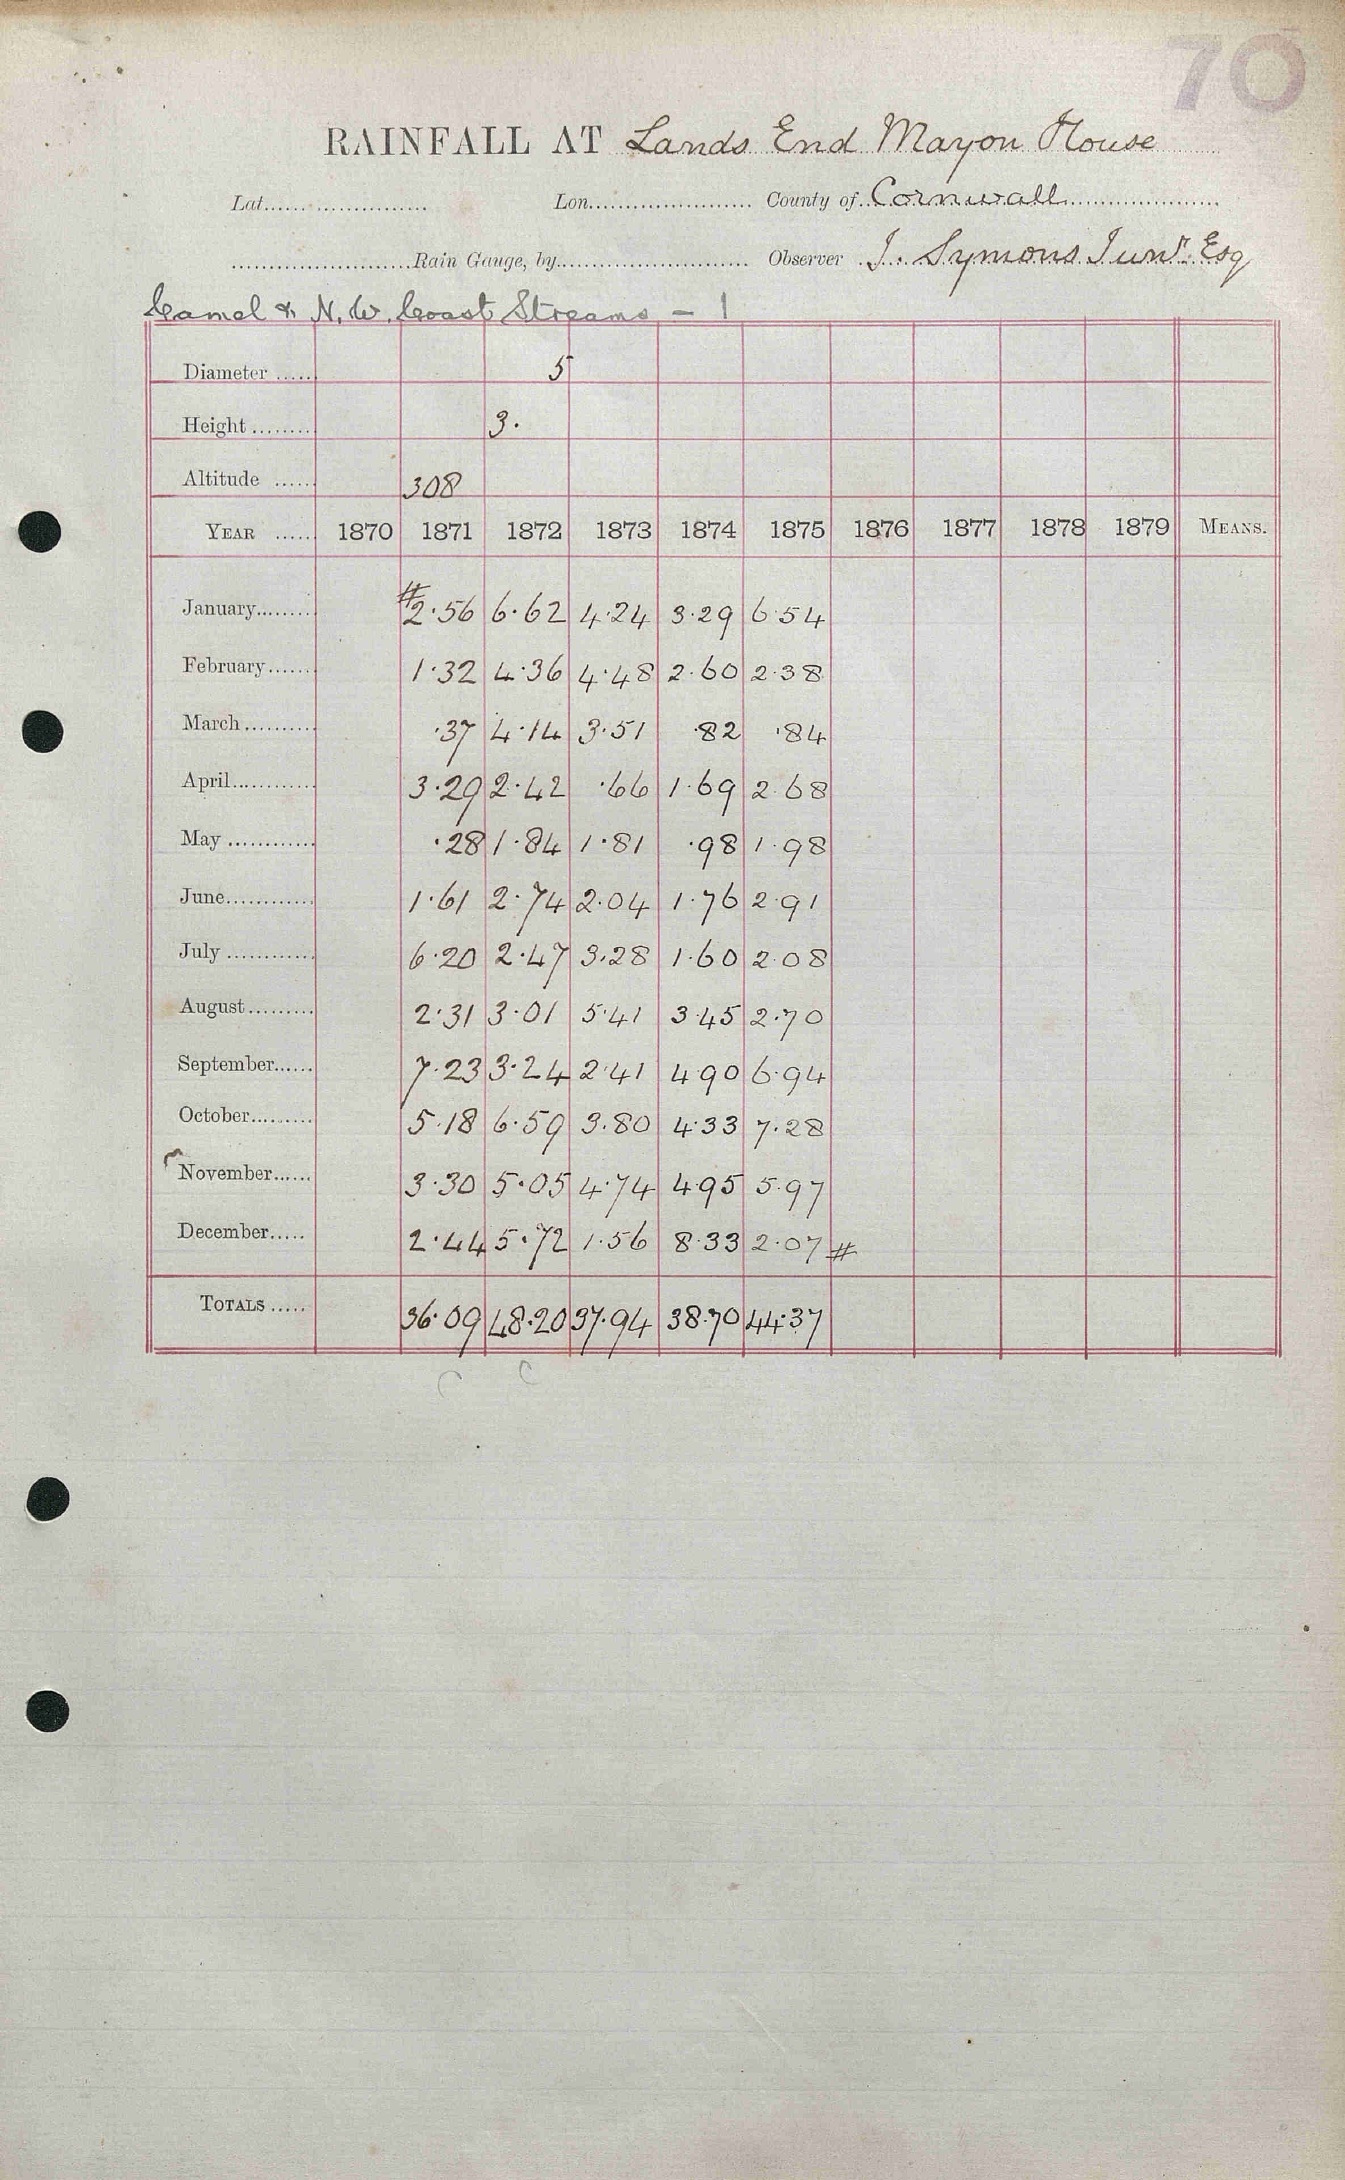 70
RAINFALL AT Lands End Mayon House
Lat.................... Lon.................... County of Cornwall
....................Rain Gauge, by.................... Observer J. Symons Junr. Esq
Camel & N. W. Coast Streams - 1
Diameter ..... 5
Height ........ 3.
Altitude ..... 308
YEAR ..... 1870 1871 1872 1873 1874 1875 1876 1877 1878 1879 MEANS.
January........ #2.56 6.62 4.24 3.29 6.54
February...... 1.32 4.36 4.48 2.60 2.38
March.......... .37 4.14 3.51 .82 .84
April............ 3.29 2.42 .66 1.69 2.68
May ............ .28 1.84 1.81 .98 1.98
June............ 1.61 2.74 2.04 1.76 2.91
July ............ 6.20 2.47 3.28 1.60 2.08
August......... 2.31 3.01 5.41 3.45 2.70
September...... 7.23 3.24 2.41 4.90 6.94
October......... 5.18 6.59 3.80 4.33 7.28
November...... 3.30 5.05 4.74 4.95 5.97
December..... 2.44 5.72 1.56 8.33 2.07 #
TOTALS ..... 36.09 48.20 37.94 38.70 44.37
C C